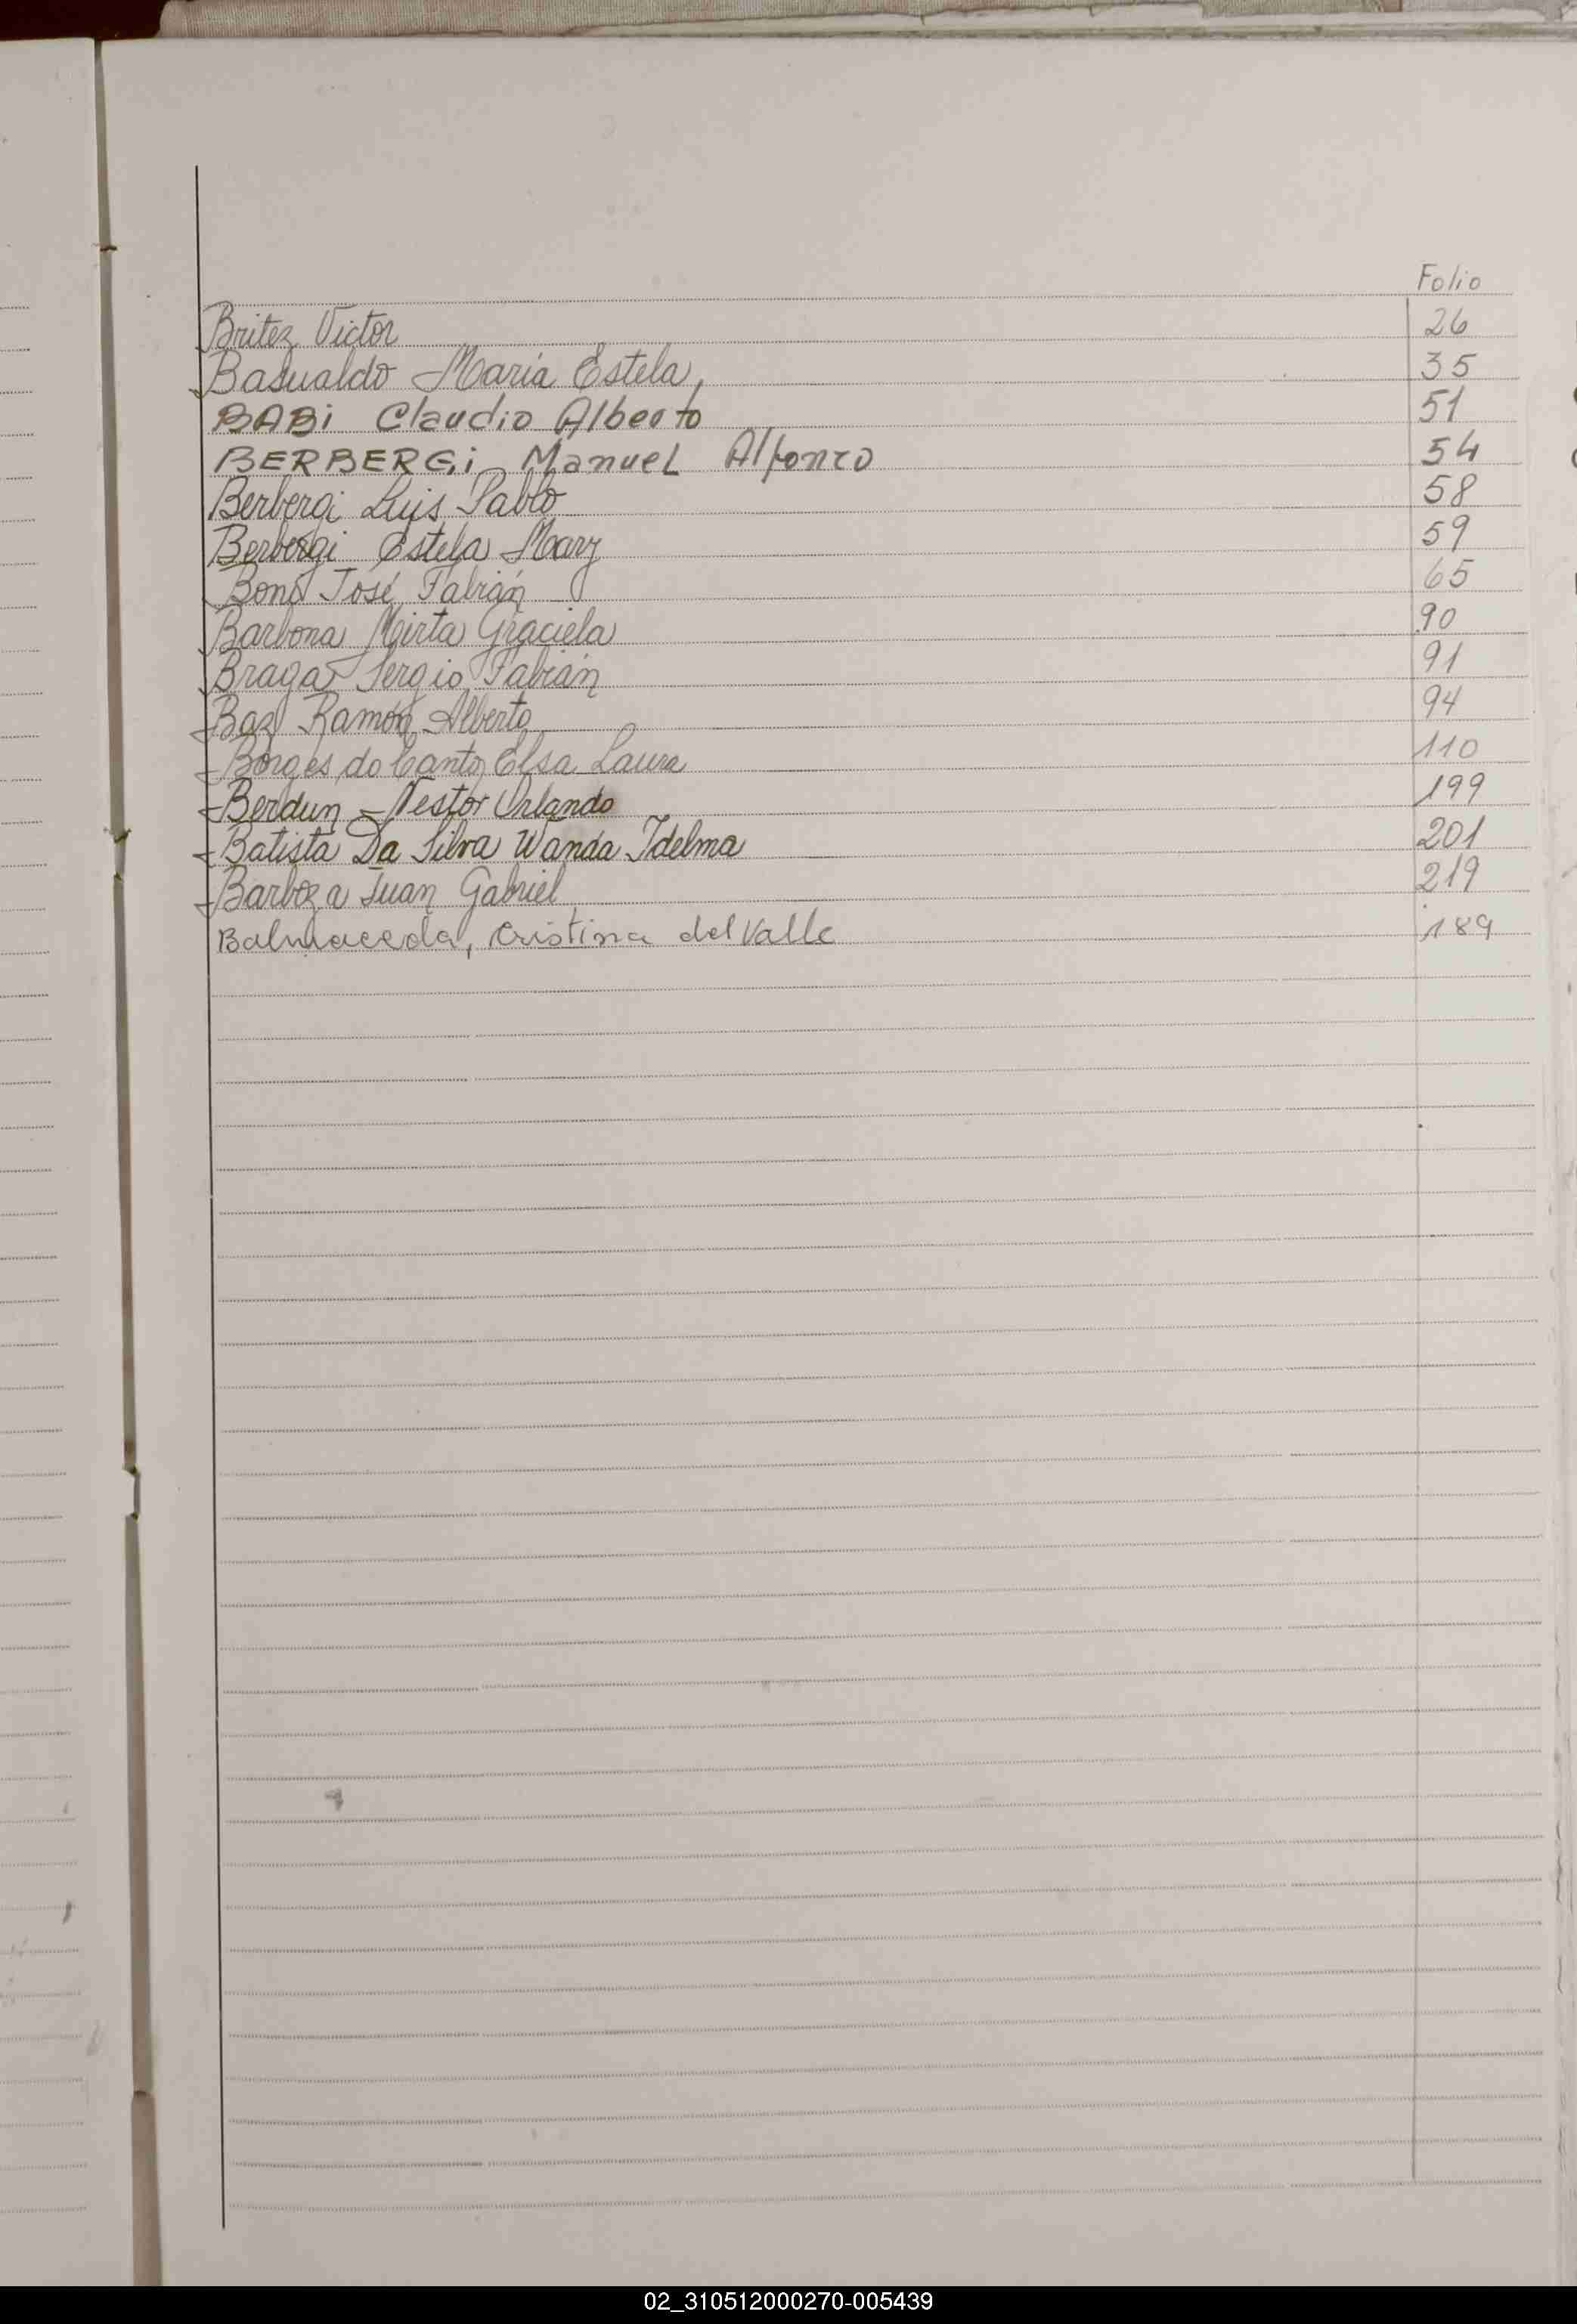 Folio
Britez Victor 26
Basualdo María Estela, 35
BABi Claudio Alberto 51
BERBERGi Manuel Alfonzo 54
Berbergi Luis Pablo 58
Berbergi Estela Mary 59
Bono José Fabián 65
Barbona Mirta Graciela 90
Braga Sergio Fabián 91
Baz Ramón Alberto 94
Borges do Canto Elsa Laura 110
Berdun - Nestor Orlando 199
Batista Da Silva Wanda Idelma 201
Barboza Juan Gabriel 219
Balmaceda, Cristina del Valle 189
02_310512000270-005439